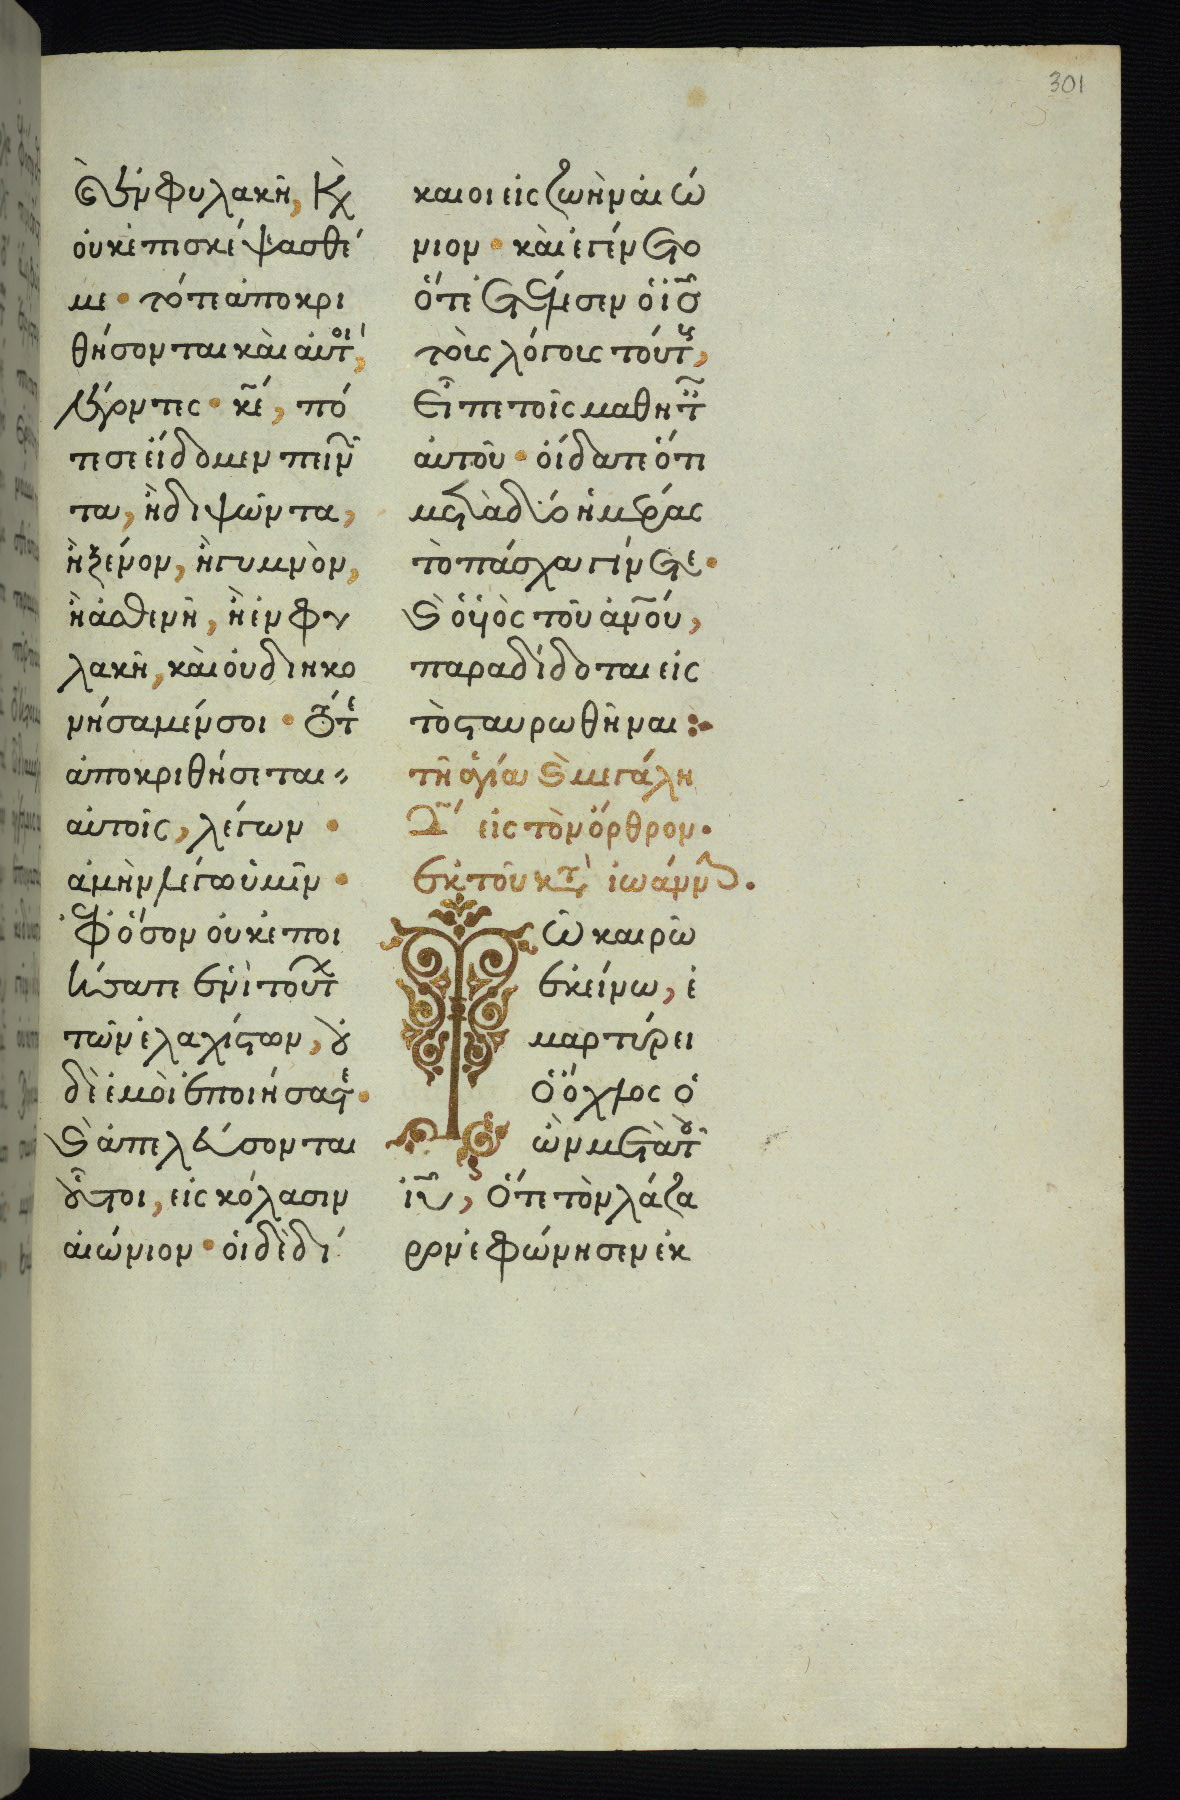 301
ὲ ἐν φυλακῆ, κὶ
οὐκ ἐπισκέψασθέ
με · τότε ἀποκρι
θήσονται καὶ αὐτοὶ,
λέγοντες · κ̅ε, πό
τε σε εἴδομεν πεινῶν
τα, ἢ διψῶντα,
ἢ ξένον, ἢ γυμνὸν,
ἢ ἀσθενῆ, ἢ ἐν φυ
λακῆ, καὶ οὐ διηκο
νήσαμέν σοι · τότε
ἀποκριθήσεται
αὐτοῖς, λέγων ·
ἀμὴν λέγω ὑμῖν ·
ἐφ ὅσον οὐκ ἐποι
ήσατε ἑνὶ τούτων
τῶν ἐλαχίστων, οὐ
δὲ ἐμοὶ ἐποιήσατε ·
καὶ ἀπελεύσονται
οὗτοι, εἰς κόλασιν
αἰώνιον · οἱ δὲ δί
καιοι εἰς ζωὴν αἰώ
νιον · καὶ ἐγένετο
ὅτε ἐτέλεσεν ὁ ι̅σ
τοὺς λόγους τούτους,
εἶπε τοῖς μαθηταῖς
αὐτοῦ · οἴδατε ὅτι
μετὰ δύο ἡμέρας
τὸ πάσχα γίνεται ·
καὶ ὁ υἱὸς τοῦ ἀν̅ου,
παραδίδοται εἰς
τὸ σταυρωθῆναι :
τῆ ἁγία καὶ μεγάλη
Δ εἰς τὸν ὄρθρον ·
ἐκ τοῦ κατὰ ἰωάννην ·
Τῶ καιρῶ
ἐκείνω, ἐ
μαρτύρει
ὁ ὄχλος ὁ
ὢν μετὰ τοῦ
ι̅υ, ὅτε τὸν λάζα
ρον ἐφώνησεν ἐκ